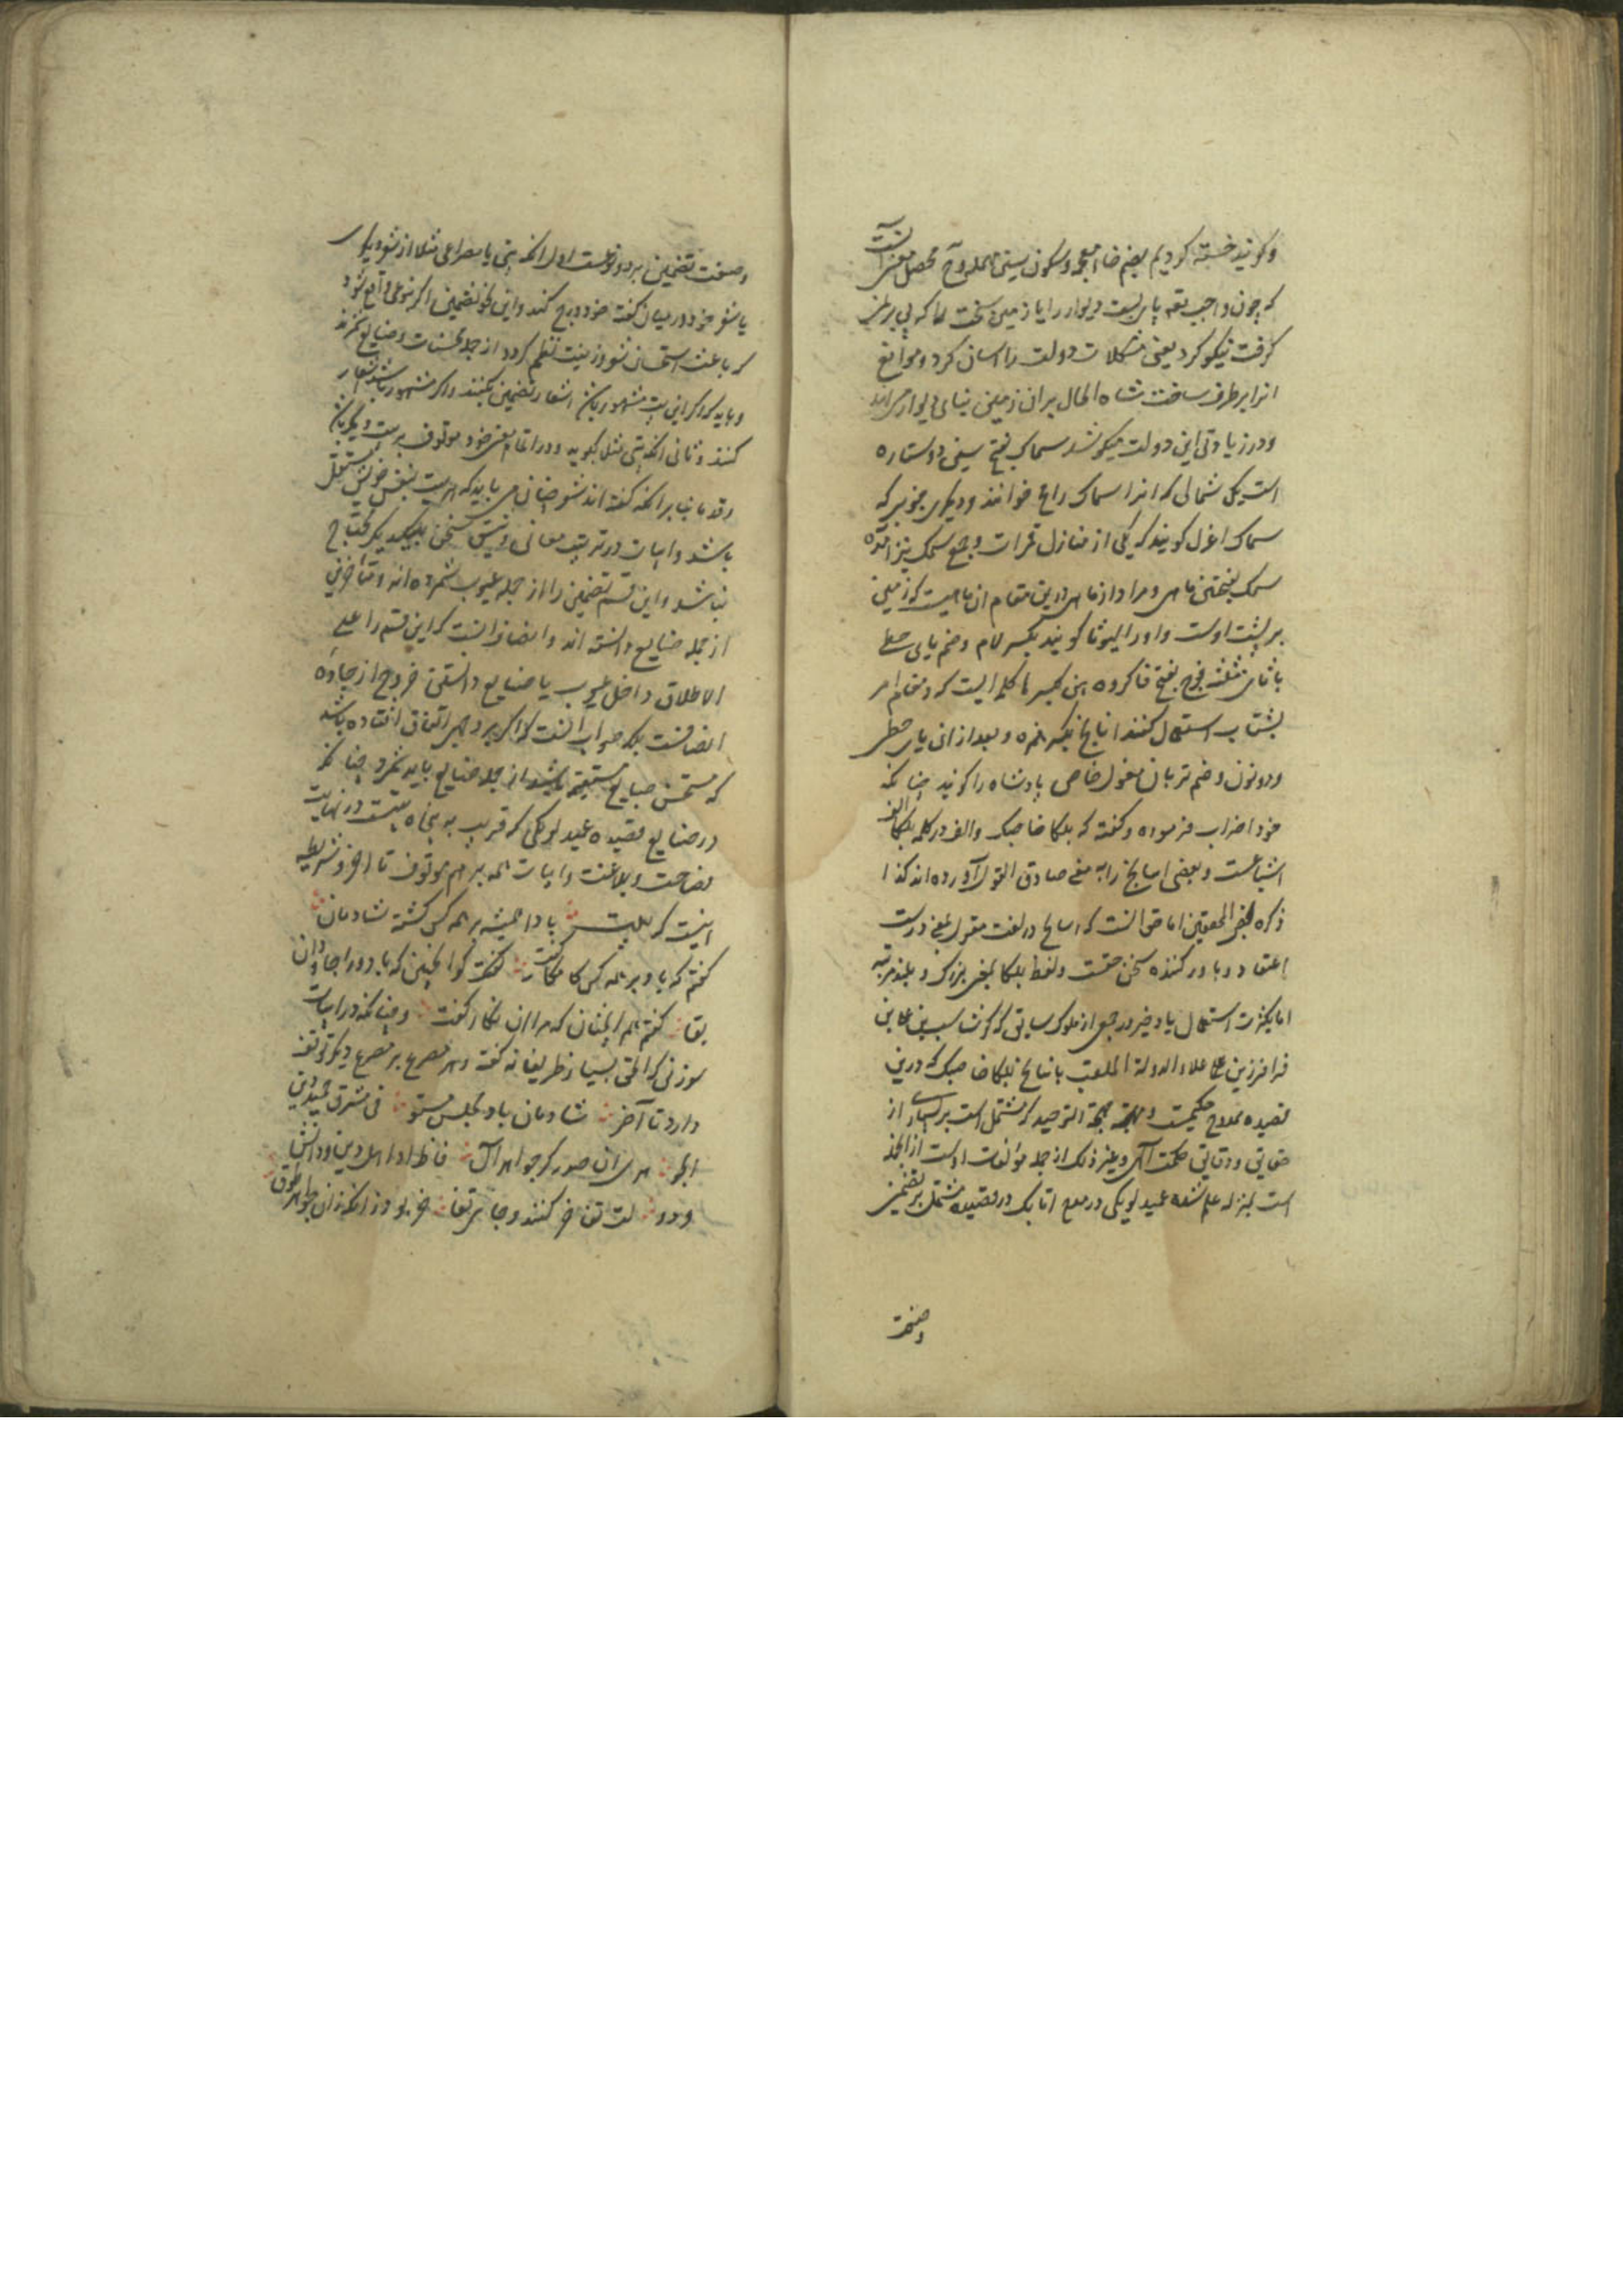 و کویند خسته کردیم بضم خاء معجمه و سکون سین مهمله و محصل معنی آنست
که چون واجب پای بست دیوار را یا زمین سخت
کرفت نیکو کرد یعنی مشکلات دولت را اسان کرد و موانع
انرا برطرف ساخت شاه الحال بر ان زمین بنیاد دیوار
و در زیادتی این دولت میکوشد سماک بفتح سین دو ستاره
است یکی شمالی که انرا سماک رامح خوانند و دیکری جنوبی که
سماک اعزل کویند که یکی از منازل قمر است و جمع سمک نیز آمده
سمک بفتحتین ماهی و مراد از ماهی درین مقام ان ماهیست که زمین
بر پشت اوست و او را لیوثا کویند بکسر لام و ضم یای حطی
با ثای مثلثه فوج بفتح فا کروه هین بکسر ها کلمه ایست که در مقام امر
بشتاب استعمال کنند اینانج بکسر همزه و بعد از ان یای حطی
و دو نون و ضم بزبان مغول خاص پادشاه را کویند چنانکه
خود اضراب فرموده و کفته که بلکا خاصبک و الف در کلمه بلکا الف
اشباعست و بعضی اینانج را به معنی صادق القول آورده اند کذا
ذکره بعض المحققین اما حق آنست که اینانج در لغت مغول بمعنی درست
اعتقاد و باور کننده سخن حقست و لفظ بلکا بمعنی بزرک و بلند مرتبه
اما بکثرت استعمال در جمع از ملوک سابق که
فرامرز بن علاء الدوله الملقب باینانج بلکا خاصبک که درین
قصیده ممدوح حکیمست و مهجة التوحید که مشتمل است بر بسیاری از
حقایق و دقایق حکمت الهی و غیر ذلک از جمله مؤلفات اوست
است بمنزله علم شده عبید لوبکی در مدح اتابک در قصیده مشتمل بر تضمین
وصنعت
وصنعت تضمین بر دو نوعست اول انکه بیتی یا مصراعی مثلا از شعر دیکری
یا شعر خود در میان کفته خود درج کند و این نحو تضمین اکر بنوعی واقع شود
که باعث استحسان شعر و زینت نظم کردد از جمله محسنات و صنایع شمرند
و باید که اکر این بیت مشهور باشد اشعار بتضمین نکنند و اکر مشهور نباشد اشعار
کنند و ثانی انکه بیتی مثلا بکوید و در اتمام معنی خود موقوف بر بیت دیکر باشد
و قدما بنابر انکه کفته اند شعر چنان می باید که هر بیت بنفس خویش مستقل
باشد و ابیات در ترتیب معانی و تنسیق سخن بیکدیکر محتاج
نباشد و این قسم تضمین را از جمله عیوب شمرده اند و متاخرین
از جمله صنایع دانسته اند و انصاف آنست که این قسم را علی
الاطلاق داخل عیوب یا صنایع داشتن خروج از جاده
انصافست بلکه صواب آنست که اکر بر وجهی اتفاق افتاده باشد
که مستحسن طبایع مستقیمه باشد از جمله صنایع باید شمرد چنانکه
در صنایع قصیده عبید لوبکی که قریب به پنجاه بیتست در نهایت
فصاحت و بلاغت و ابیات همه بر هم موقوف تا اخر و شریطه
اینست که بادا همیشه بر همه کس کشته شادمان
کفتم که باد بر همه کس کامکار کفت کفت که اینچنین که باد ورا جاودان
بقا کفتم هم اینچنان که مرا ان نکار کفت و چنانکه در ابیات
سوزنی که الحق بسیار ظریفانه کفته و هر مصرع بر مصرع دیکر توقف
دارد تا آخر شادمان باد مجلس مستو فی مشرق حمید دین
الجو هری ان صدر که جواهر ال فاظ او اهل دین و دانش
و دو لت تفاخر کنند و جای تفا خر بود زانکه زان جواهر طوق